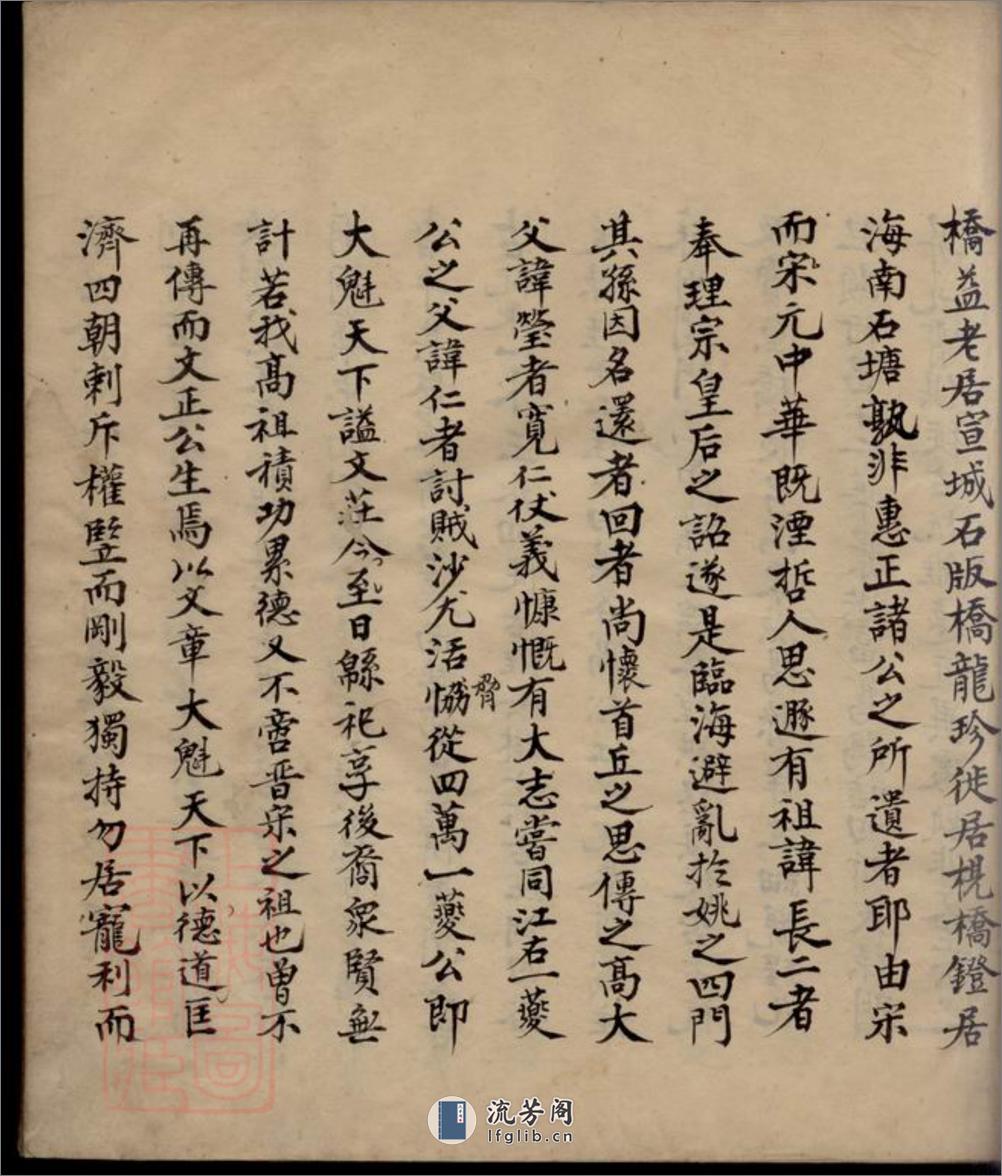 橋益老居宣城石版橋龍珍徙居梘橋鐙居
海南石塘孰非惠正諸公之所遺者耶由宋
而宋元中華既湮哲人思遯有祖諱長二者
奉理宗皇后之詔遂是臨海避亂扵姚之四門
其孫因名還者回者尚懷首丘之思傳之高大
父諱瑩者寬仁仗義慷慨有大志嘗同江右一夔
公之父諱仁者討賊沙尤活恊從四萬一夔公即
脅
大魁天下謚文莊今至日縣祀享後裔衆賢無
計若我高祖積功累德又不啻晋宋之祖也曽不
再傳而文正公生焉以文章大魁天下以德道匡
濟四朝剌斥權竪而剛毅獨持勿居寵利而
流芳阁
lfglib.cn